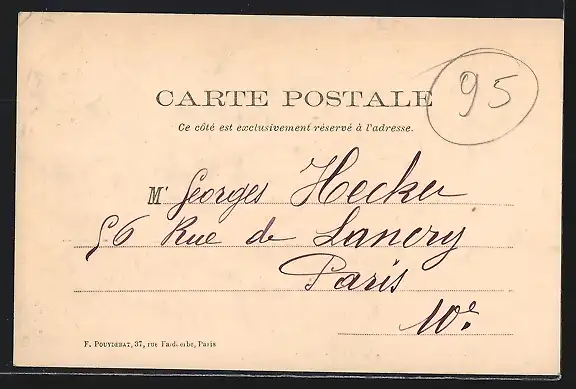 95
CARTE POSTALE
Ce côté est exclusivement réservé à l'adresse.
Mr Georges Hecker
56 Rue de Lancry
Paris
10e.
F. Pouydebat, 37, rue Faidherbe, Paris